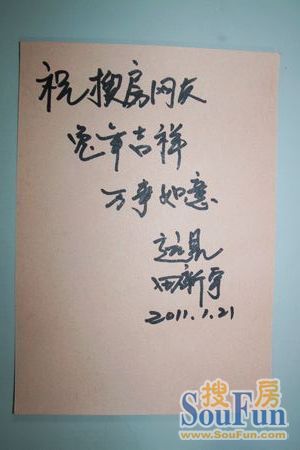 祝搜房网友
兔年吉祥
万事如意
远晟
田新宇
2011.1.21
搜房
SouFun
www.SouFun.com